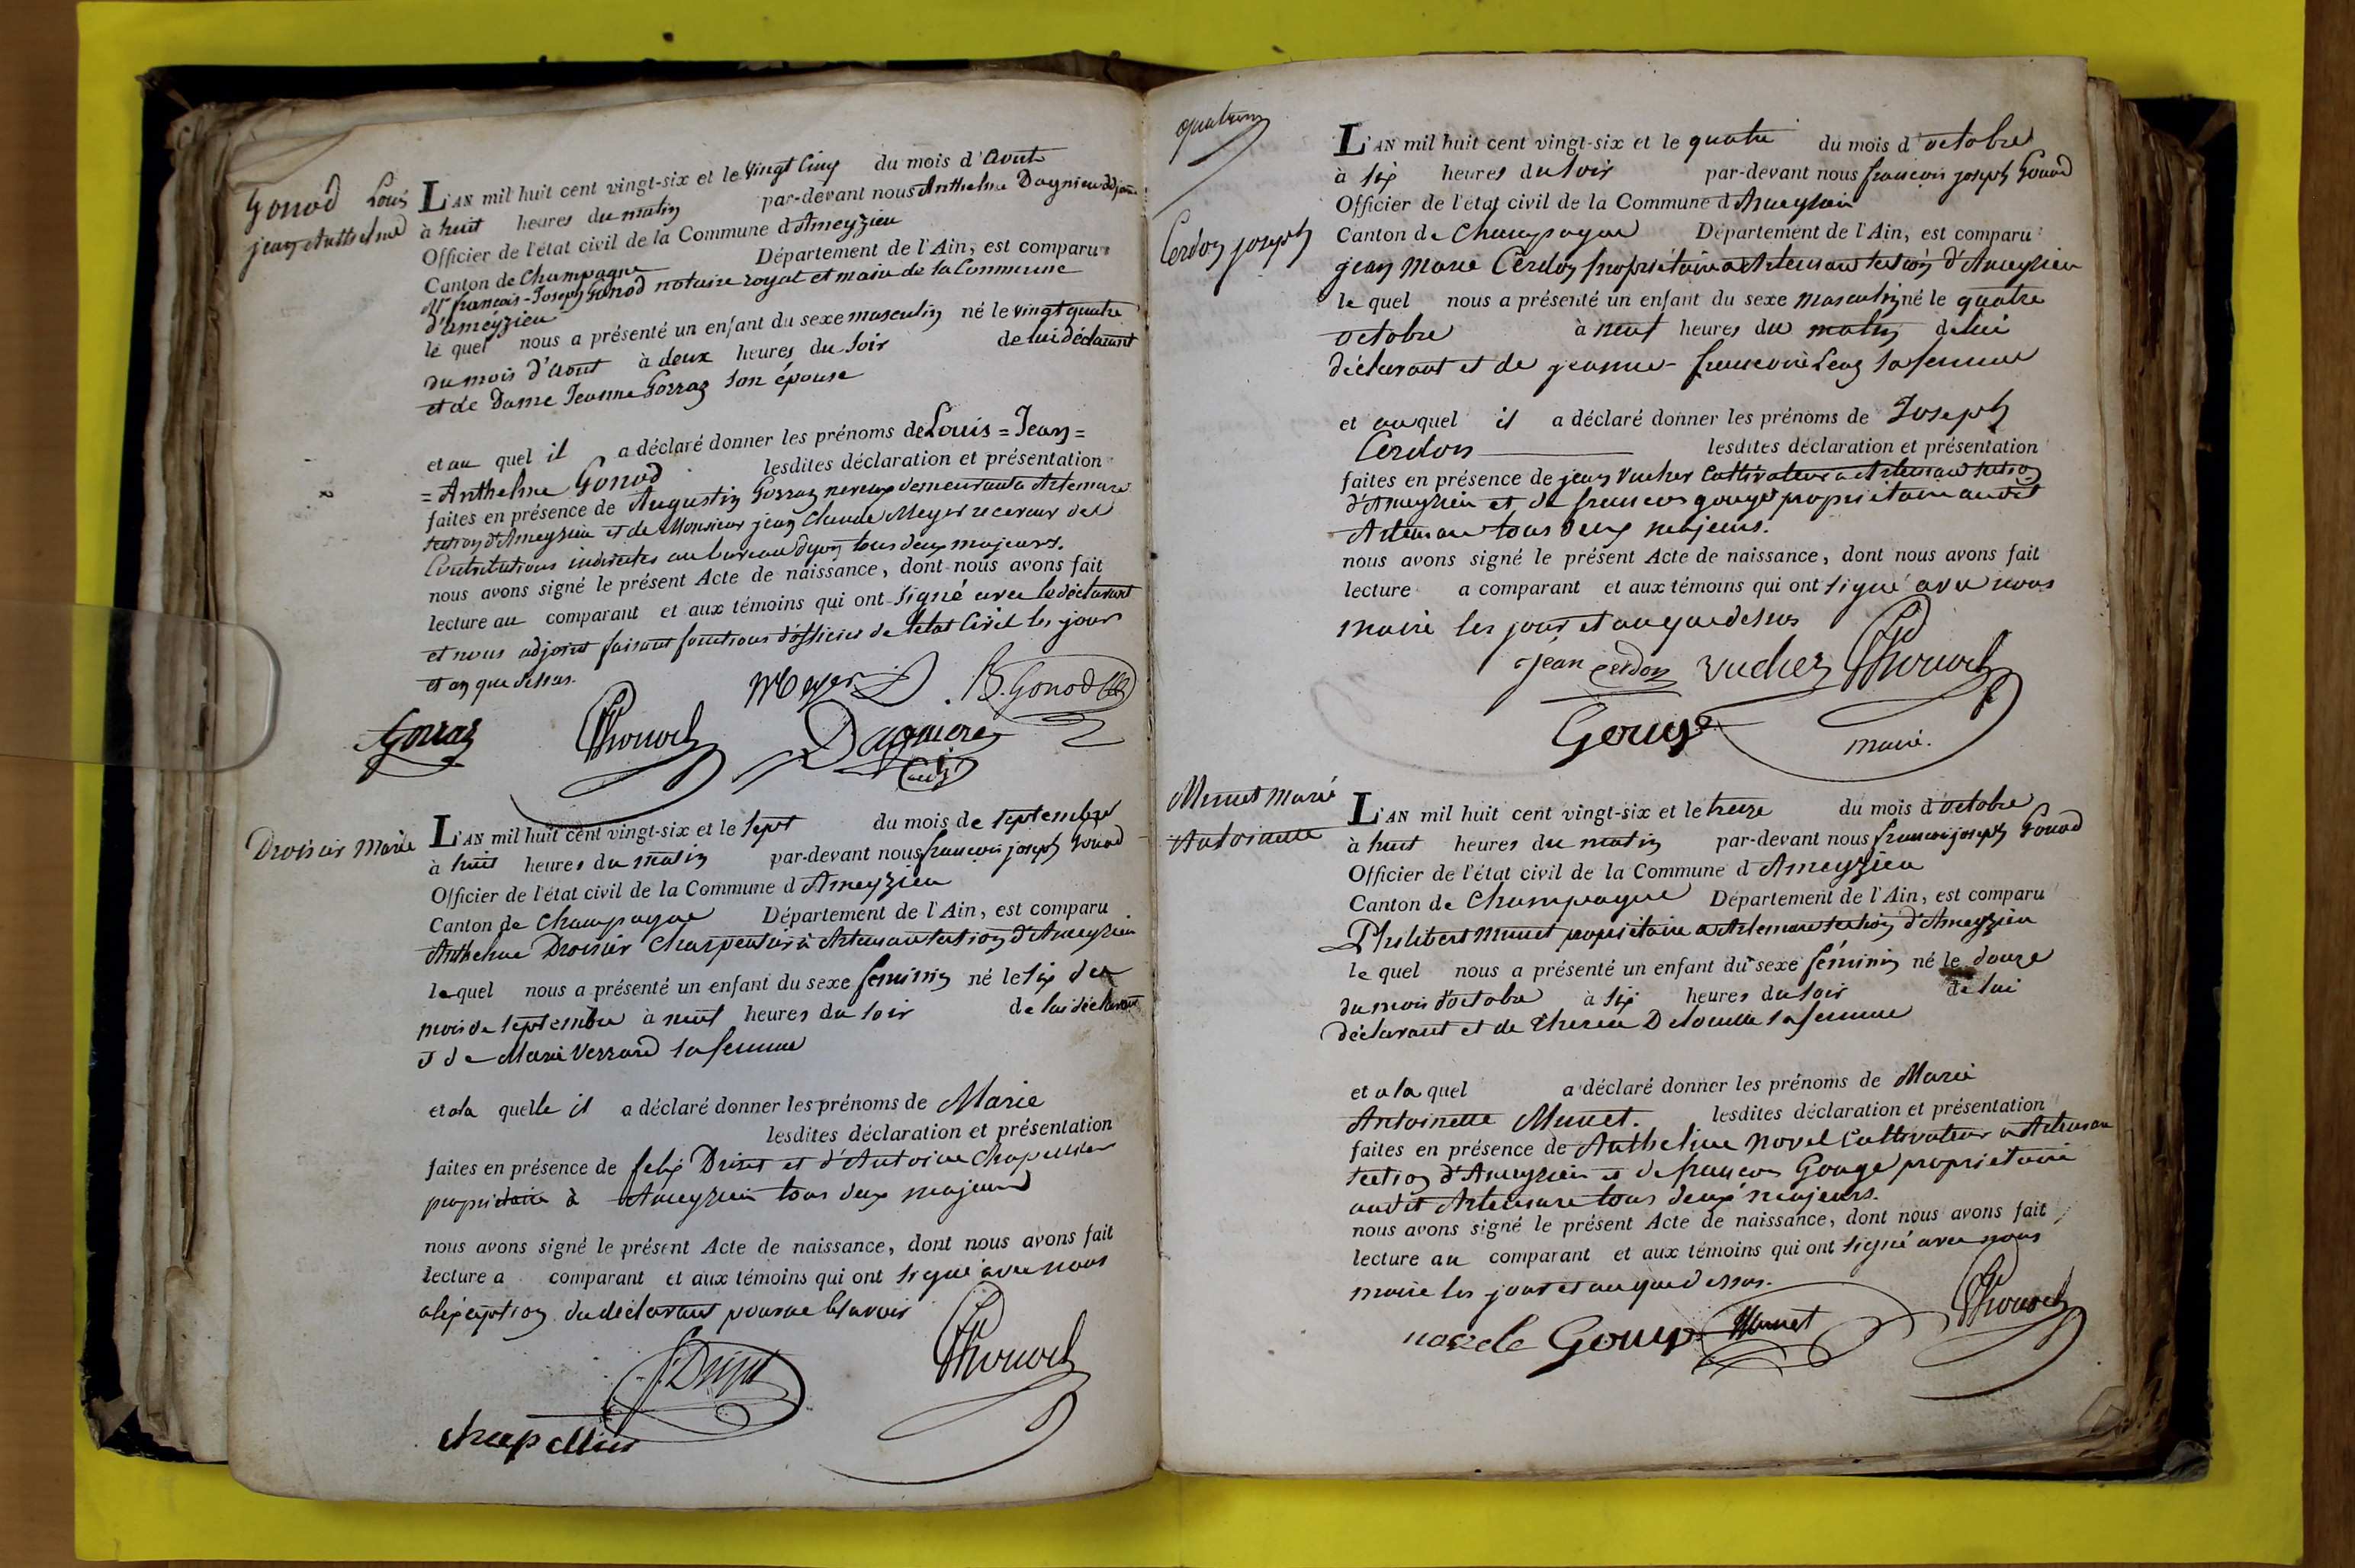 Gonod Louis
jean Anthelme
L'AN mil huit cent vingt-six et le vingt cinq du mois d'Aout
à huit heures du matin par-devant nous Anthelme Dagnieu adjoint
Officier de l'état civil de la Commune d'Ameyzieu
Canton de Champagne Département de l'Ain, est comparu
Mr françois-Joseph Gonod notaire royal et maire de la Commune
d'améyzieu
le quel nous a présenté un enfant du sexe masculin né le vingt quatre
du mois d'Aout à deux heures du soir de lui déclarant
et de Dame Jeanne Gorraz son épouse
et au quel il a déclaré donner les prénoms de Louis = Jean =
= Anthelme Gonod lesdites déclaration et présentation
faites en présence de Augustin Gorraz neveux demeurant a Artemare
section d'Ameyzieu et de Monsieur jean Claude Meyer receveur des
Contributions indirectes au bureau dyon tous deux majeurs.
nous avons signé le présent Acte de naissance, dont nous avons fait
lecture au comparant et aux témoins qui ont signé avec le déclarant
et nous adjoint faisant fonctions d'officier de l'état Civil les jour
et an que dessus.
Meyer B. Gonod
Gorraz Gonod Dagnieu
adj.
Droisier Marie
L'AN mil huit cent vingt-six et le sept du mois de septembre
à huit heures du matin par-devant nous francois joseph Gonod
Officier de l'état civil de la Commune d Ameyzieu
Canton de Champagne Département de l'Ain, est comparu
Anthelme Droisier Charpentier à Artemare section d'Ameyzieu
le quel nous a présenté un enfant du sexe feminin né le six du
mois de septembre à neuf heures du soir de lui déclarant
et de Marie Verrard sa femme
et a la quelle il a déclaré donner les prénoms de Marie
lesdites déclaration et présentation
faites en présence de felix Drizet et d'Antoine Chapellier
propriétaire à Ameyzieu tous deux majeurs
nous avons signé le présent Acte de naissance, dont nous avons fait
lecture a comparant et aux témoins qui ont signé avec nous
a léxception du déclarant pour ne le savoir
f. Drizet Gonod
chapellier
quatrieme
Cerdon joseph
L'AN mil huit cent vingt-six et le quatre du mois d'octobre
à six heures du soir par-devant nous françois joseph Gonod
Officier de l'état civil de la Commune d Ameyzieu
Canton de Champagne Département de l'Ain, est comparu
jean Marie Cerdon propriétaire a Artemare section d'Ameyzieu
le quel nous a présenté un enfant du sexe masculin né le quatre
octobre à neuf heures du matin de lui
déclarant et de jeanne-francoise Leaz sa femme
et au quel il a déclaré donner les prénoms de Joseph
Cerdon lesdites déclaration et présentation
faites en présence de jean Vucher Cultivateur a Artemare section
d'Ameyzieu et de francois gouge propriétaire audit
Artemare tous deux majeurs.
nous avons signé le présent Acte de naissance, dont nous avons fait
lecture a comparant et aux témoins qui ont signé avec nous
maire les jour et an que dessus
jéan cerdon vucher Gonod
Gouge maire.
Munet Marie
Antoinette
L'AN mil huit cent vingt-six et le treize du mois d'octobre
à huit heures du matin par-devant nous francois joseph Gonod
Officier de l'état civil de la Commune d Ameyzieu
Canton de Champagne Département de l'Ain, est comparu
Philibert Munet propriétaire a Artemare section d'Ameyzieu
le quel nous a présenté un enfant du sexe féminin né le douze
du mois d'octobre à six heures du soir de lui
déclarant et de Therese Delouille sa femme
et a la quel a déclaré donner les prénoms de Marie
Antoinette Munet. lesdites déclaration et présentation
faites en présence de Anthelme novel Cultivateur a Artemare
section d'Ameyzieu et de francois Gouge propriétaire
audit Artemare tous deux majeurs.
nous avons signé le présent Acte de naissance, dont nous avons fait
lecture au comparant et aux témoins qui ont signé avec nous
maire les jour et an que dessus.
novele Gouge Munet Gonod